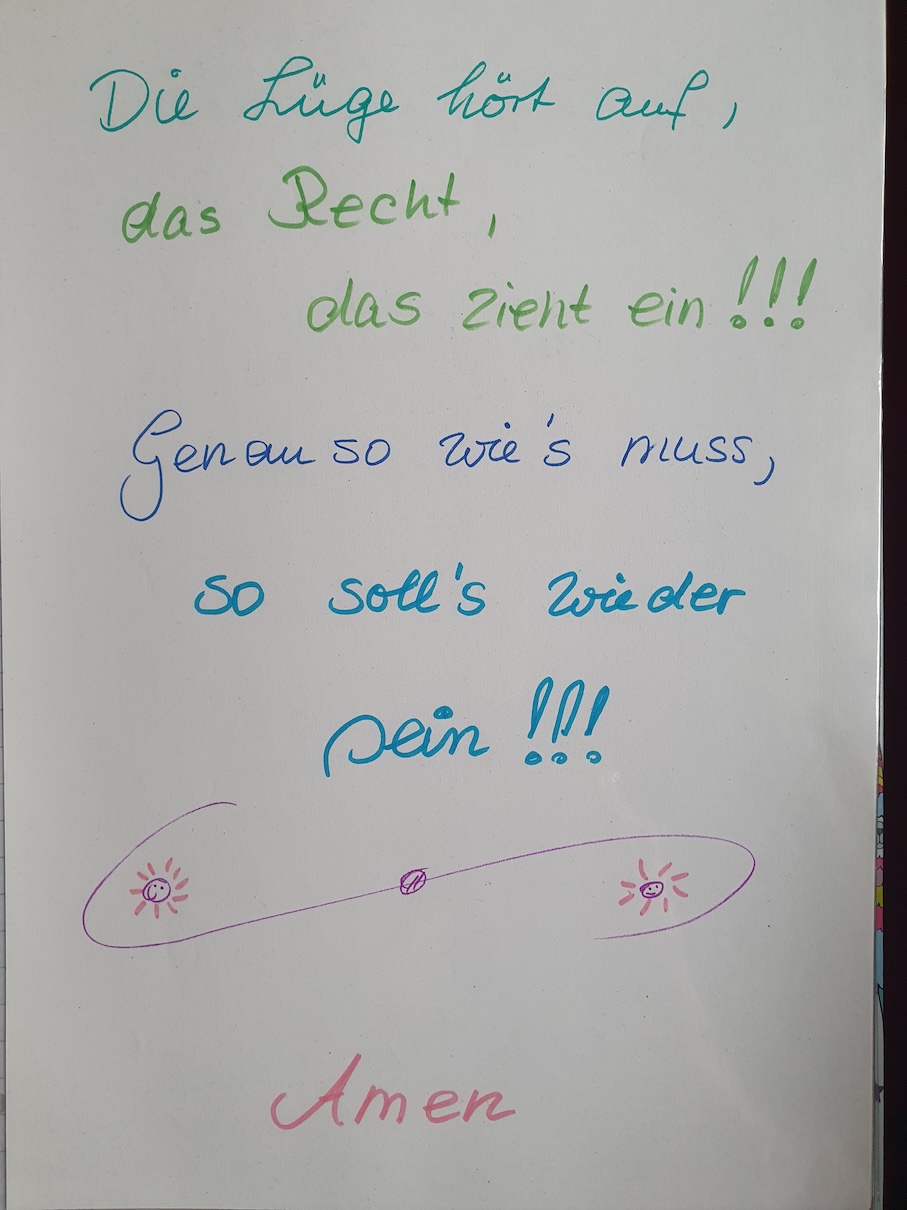 Die Lüge hört auf,
das Recht,
das zieht ein!!!
Genau so wie's muss,
so soll's wieder
sein!!!
Amen